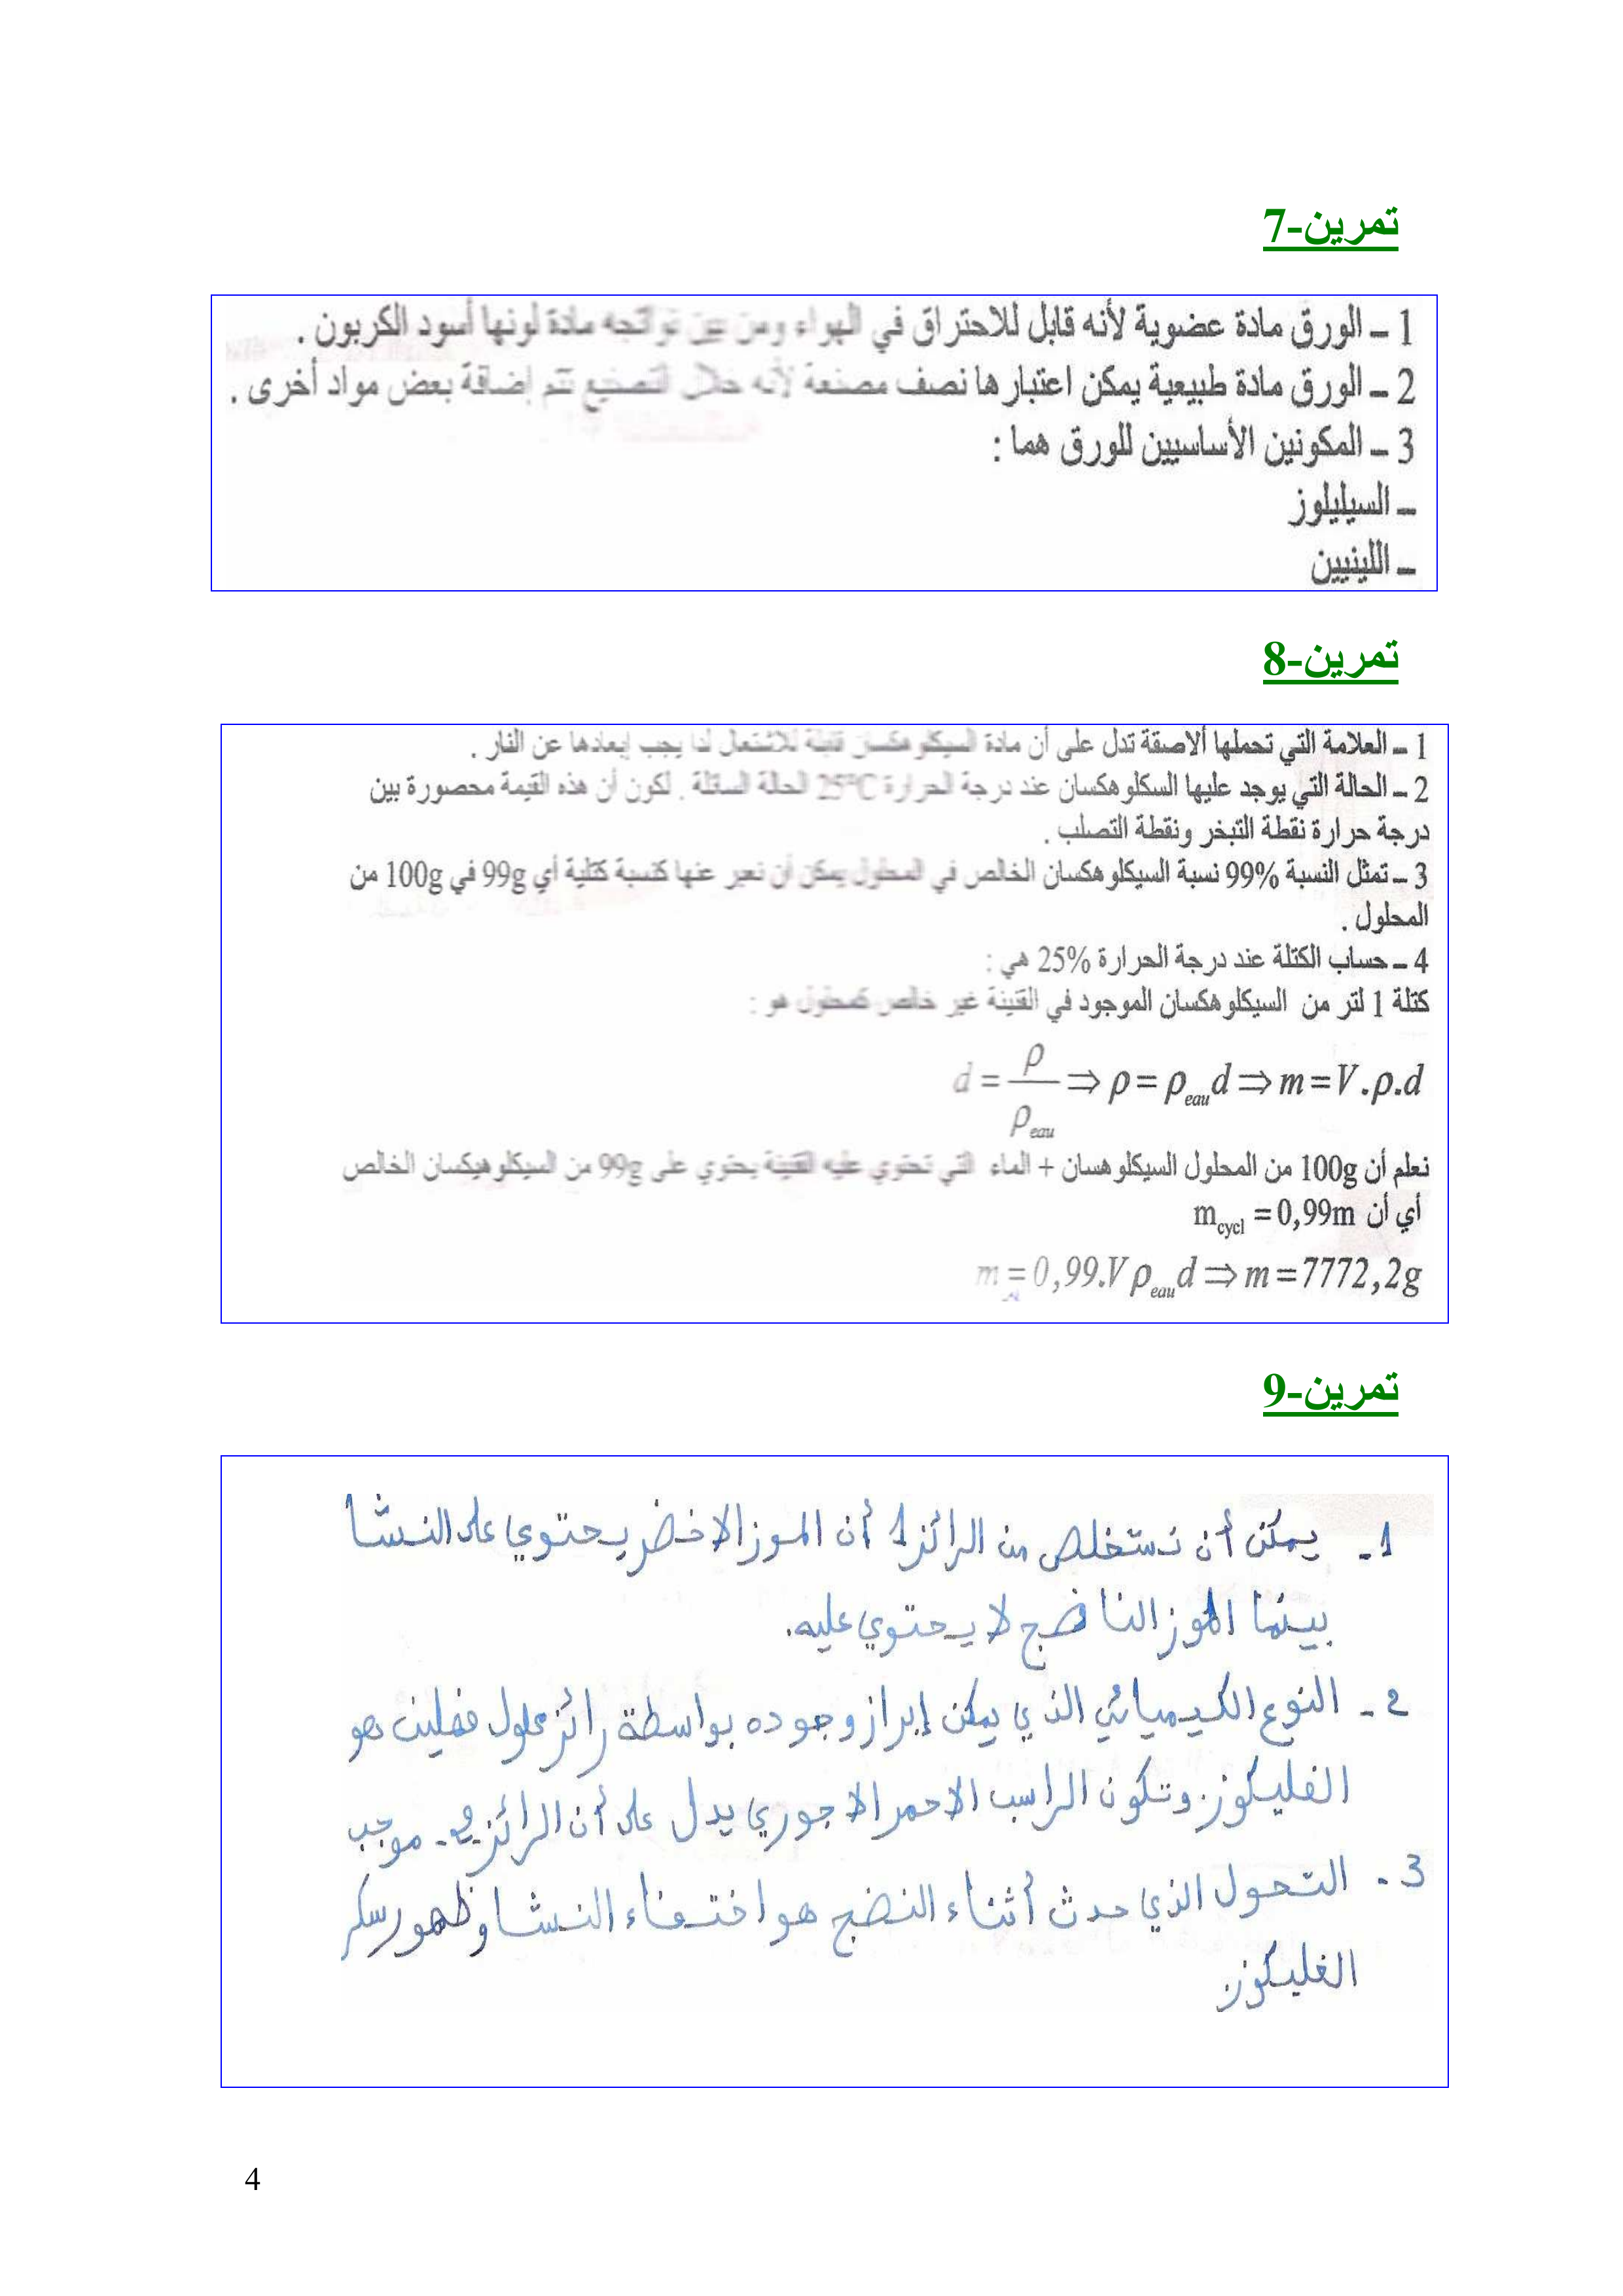 تمرين-7
1 ــ الورق مادة عضوية لأنه قابل للاحتراق في الهواء ومن بين نواتجه مادة لونها أسود الكربون .
2 ــ الورق مادة طبيعية يمكن اعتبارها نصف مصنعة لأنه خلال التصنيع تتم إضاقة بعض مواد أخرى .
3 ــ المكونين الأساسيين للورق هما :
ــ السيليلوز
ــ اللينيين
تمرين-8
1 ــ العلامة التي تحملها ألاصقة تدل على أن مادة السيكلوهكسان قابلة للاشتعال لذا يجب إبعادها عن النار .
2 ــ الحالة التي يوجد عليها السكلوهكسان عند درجة الحرارة 25°C الحالة السائلة . لكون أن هذه القيمة محصورة بين
درجة حرارة نقطة التبخر ونقطة التصلب .
3 ــ تمثل النسبة 99% نسبة السيكلوهكسان الخالص في المحلول يمكن أن نعبر عنها كنسبة كتلية أي 99g في 100g من
المحلول .
4 ــ حساب الكتلة عند درجة الحرارة 25% هي :
كتلة 1 لتر من السيكلوهكسان الموجود في القنينة غير خالص كمحلول هو :
d = ρ/ρ_eau ⇒ ρ = ρ_eau d ⇒ m = V.ρ.d
نعلم أن 100g من المحلول السيكلوهسان + الماء التي تحتوي عليه القنينة يحتوي على 99g من السيكلوهيكسان الخالص
أي أن m_cycl = 0,99m
m = 0,99.V ρ_eau d ⇒ m = 7772,2g
تمرين-9
1 - يمكن أن نستخلص من الرائز 1 أن الموز الاخضر يحتوي على النشا
بينما الموز الناضج لا يحتوي عليه.
2 - النوع الكيميائي الذي يمكن إبراز وجوده بواسطة رائز محلول فهلين هو
الغليكوز. وتكون الراسب الاحمر الاجوري يدل على أن الرائز موجب
3 - التحول الذي حدث أثناء النضج هو اختفاء النشا وظهور سكر
الغليكوز.
4